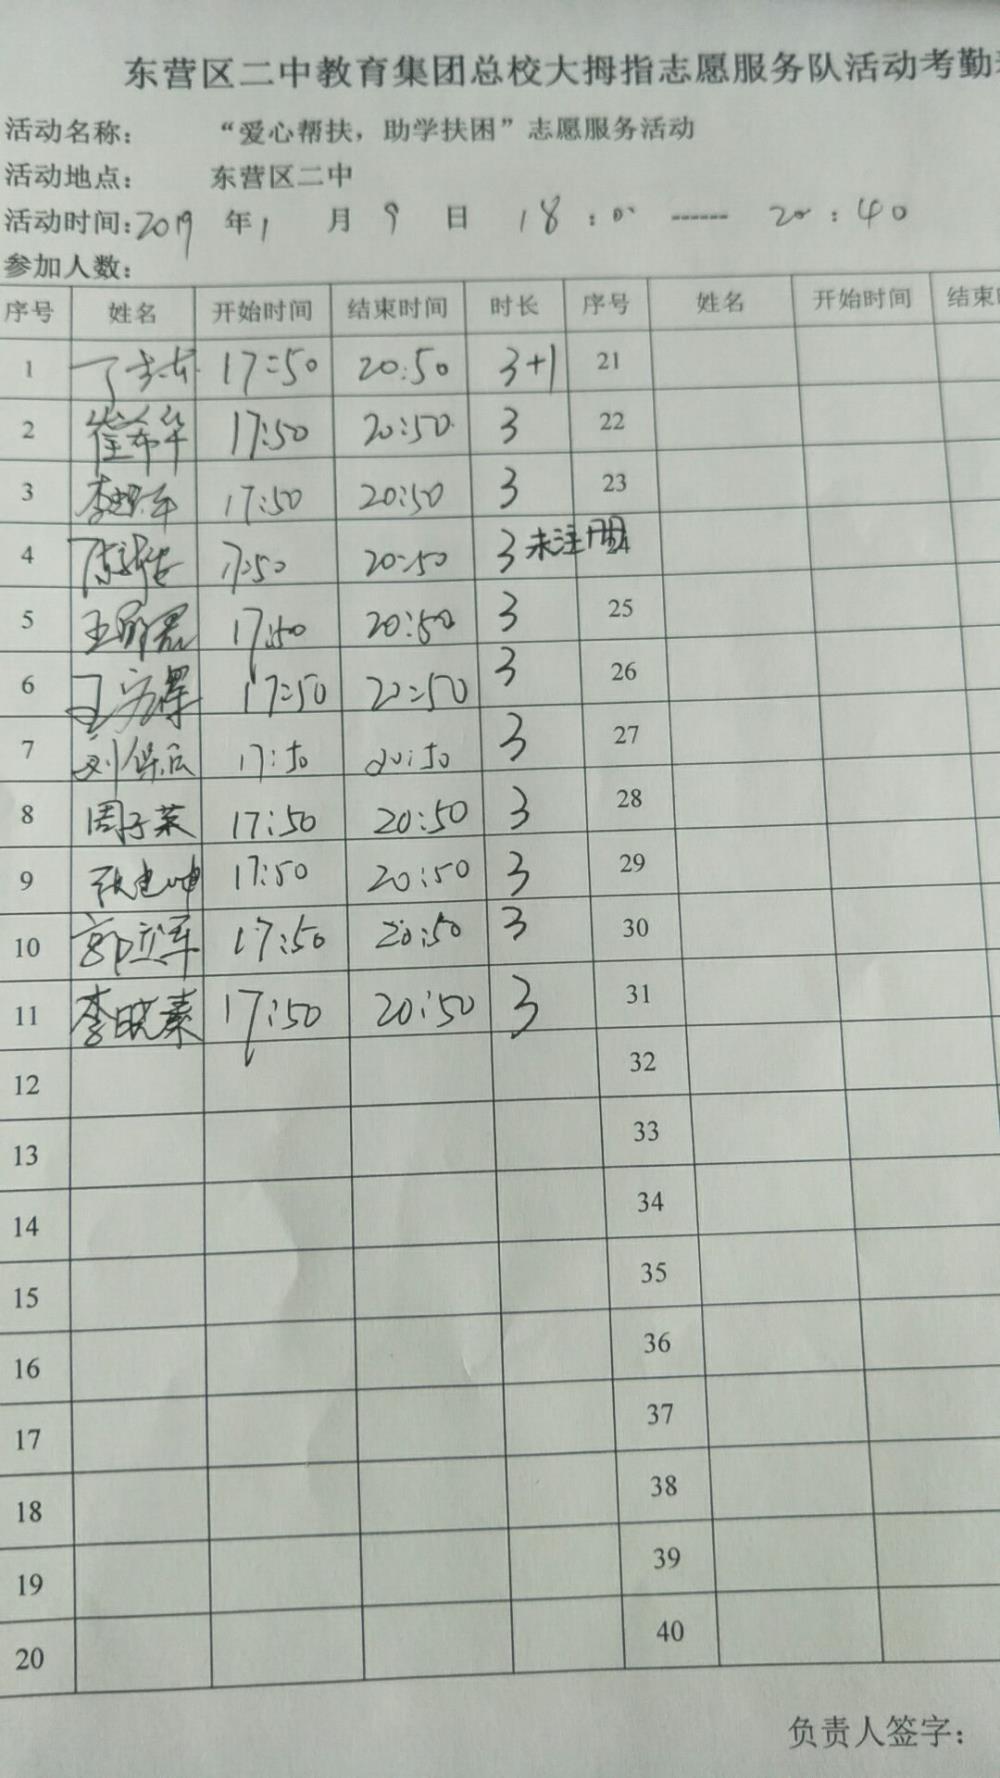 东营区二中教育集团总校大拇指志愿服务队活动考勤
活动名称： “爱心帮扶，助学扶困”志愿服务活动
活动地点： 东营区二中
活动时间:2019 年1 月 9 日 18:00 ------ 20:40
参加人数：
序号 姓名 开始时间 结束时间 时长 序号 姓名 开始时间 结束
1 17:50 20:50 3+1 21
2 崔希华 17:50 20:50 3 22
3 17:50 20:50 3 23
4 17:50 20:50 3 未注册 24
5 17:50 20:50 3 25
6 17:50 20:50 3 26
7 17:50 20:50 3 27
8 周子英 17:50 20:50 3 28
9 张建坤 17:50 20:50 3 29
10 郭立军 17:50 20:50 3 30
11 李晓素 17:50 20:50 3 31
12 32
13 33
14 34
15 35
16 36
17 37
18 38
19 39
20 40
负责人签字：